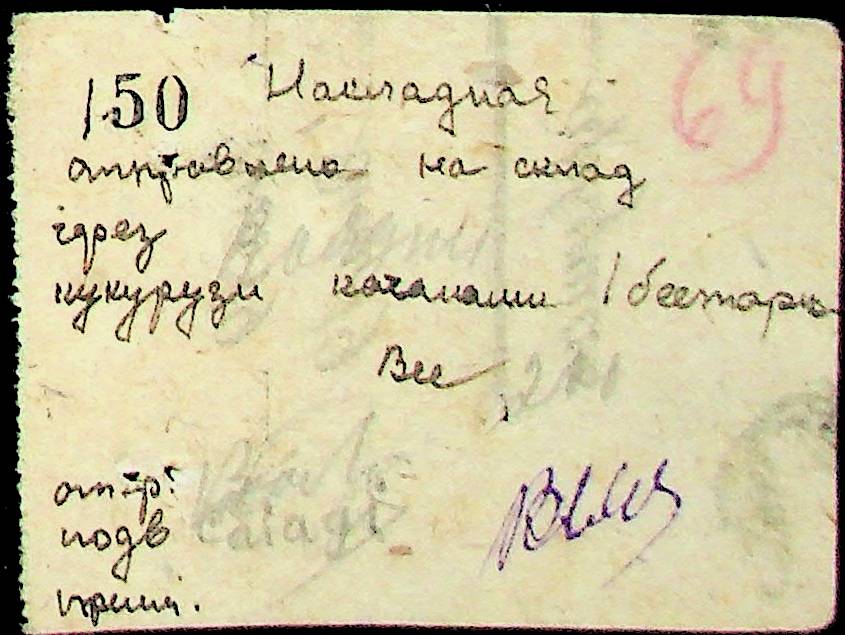 150 Накладная 69
отправлено на склад
через
кукурузи качанами / бестарно
Вес
отпр.
подв
прин.